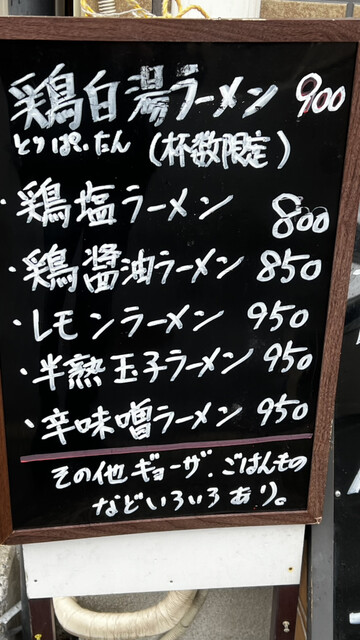 鶏白湯ラーメン 900
とりぱいたん (杯数限定)
・鶏塩ラーメン 800
・鶏醬油ラーメン 850
・レモンラーメン 950
・半熟玉子ラーメン 950
・辛味噌ラーメン 950
その他ギョーザ、ごはんもの
などいろいろあり。